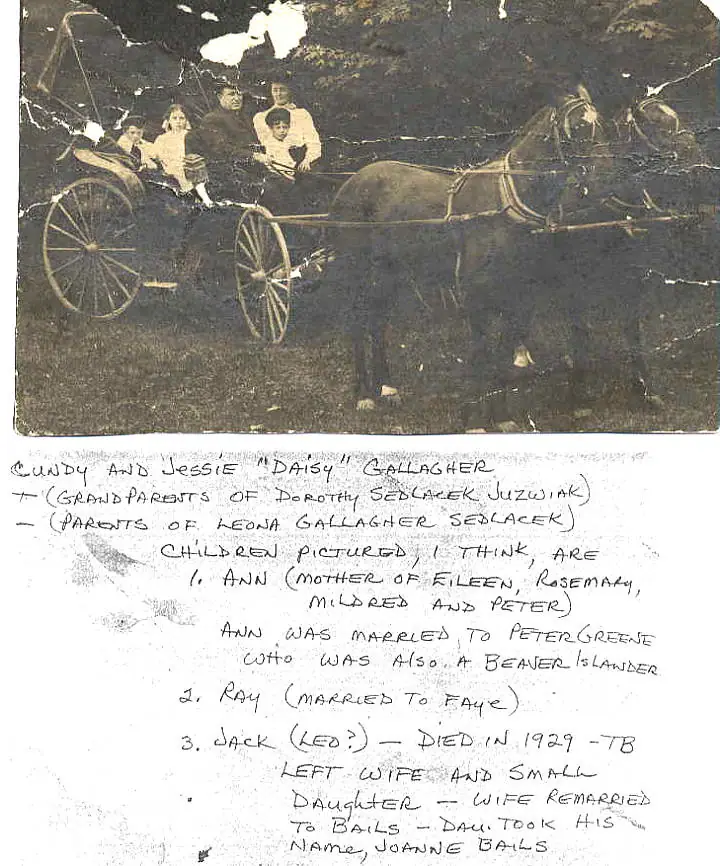 CUNDY AND JESSIE "DAISY" GALLAGHER
+ (GRANDPARENTS OF DOROTHY SEDLACEK JUZWIAK)
- (PARENTS OF LEONA GALLAGHER SEDLACEK)
CHILDREN PICTURED, I THINK, ARE
1. ANN (MOTHER OF EILEEN, ROSEMARY,
MILDRED AND PETER)
ANN WAS MARRIED TO PETER GREENE
WHO WAS ALSO A BEAVER ISLANDER
2. RAY (MARRIED TO FAYE)
3. JACK (LEO?) - DIED IN 1929 - TB
LEFT WIFE AND SMALL
DAUGHTER - WIFE REMARRIED
TO BAILS - DAU. TOOK HIS
NAME, JOANNE BAILS